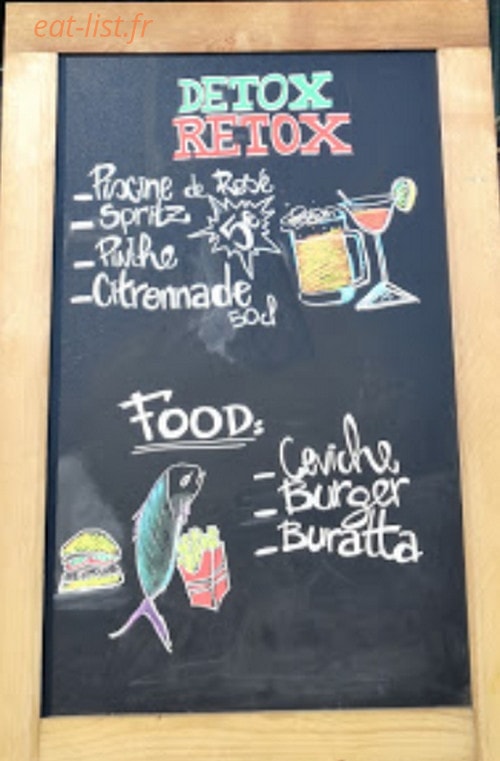 eat-list.fr
DETOX
RETOX
- Piscine de Rosé
- Spritz
5€
- Pinche
- Citronnade
50cl
FOODs
- Ceviche
- Burger
- Buratta